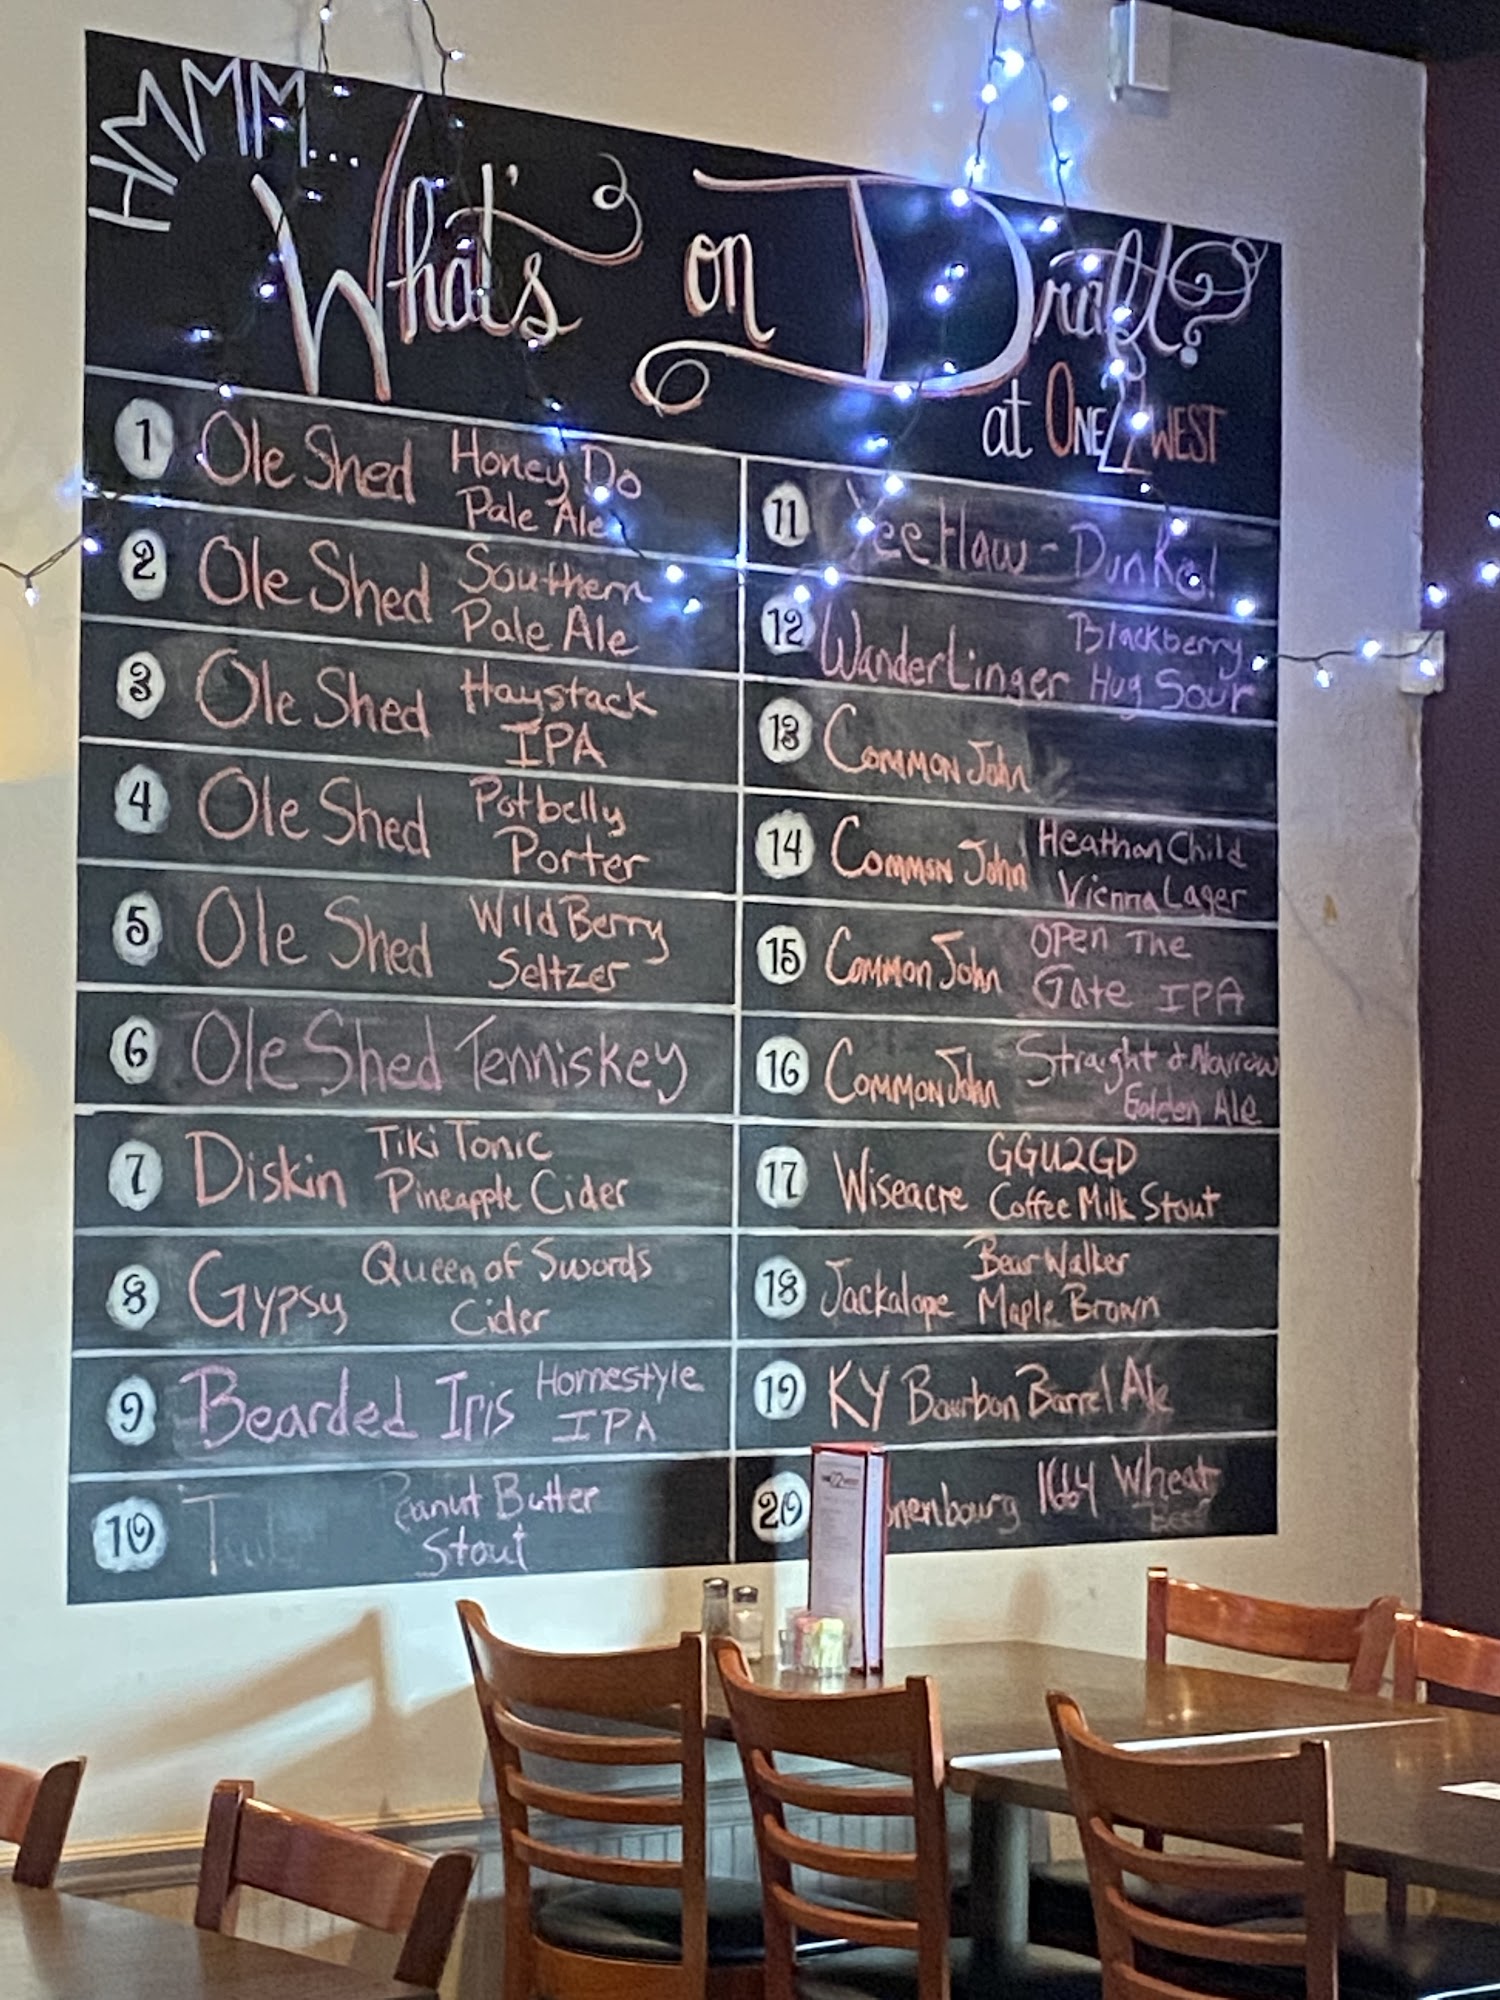 HMMM...
What's on Draft?
at ONE22WEST
1 Ole Shed Honey Do
Pale Ale
2 Ole Shed Southern
Pale Ale
3 Ole Shed Haystack
IPA
4 Ole Shed Potbelly
Porter
5 Ole Shed Wild Berry
Seltzer
6 Ole Shed Tenniskey
7 Diskin Tiki Tonic
Pineapple Cider
8 Gypsy Queen of Swords
Cider
9 Bearded Iris Homestyle
IPA
10 Peanut Butter
Stout
11 Yee Haw - Dunkel
12 WanderLinger Blackberry
Hug Sour
13 Common John
14 Common John Heathan Child
Vienna Lager
15 Common John Open The
Gate IPA
16 Common John Straight & Narrow
Golden Ale
17 Wiseacre GGU2GD
Coffee Milk Stout
18 Jackalope Bear Walker
Maple Brown
19 KY Bourbon Barrel Ale
20 onenbourg 1664 Wheat
Beer